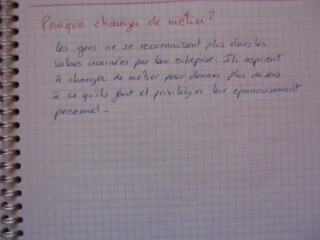 Pourquoi changer de métier?
Les gens ne se reconnaissent plus dans les
valeurs incarnées par leur entreprise. Ils aspirent
à changer de métier pour donner plus de sens
à ce qu'ils font et privilégier leur épanouissement
personnel.